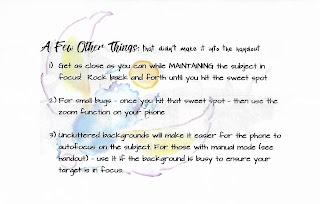 A Few Other Things: that didn't make it into the handout
1) Get as close as you can while MAINTAINING the subject in
focus! Rock back and forth until you hit the sweet spot
2) For small bugs - once you hit that sweet spot - then use the
zoom function on your phone
3) Uncluttered backgrounds will make it easier for the phone to
autofocus on the subject. For those with manual mode (see
handout) - use it if the background is busy to ensure your
target is in focus.